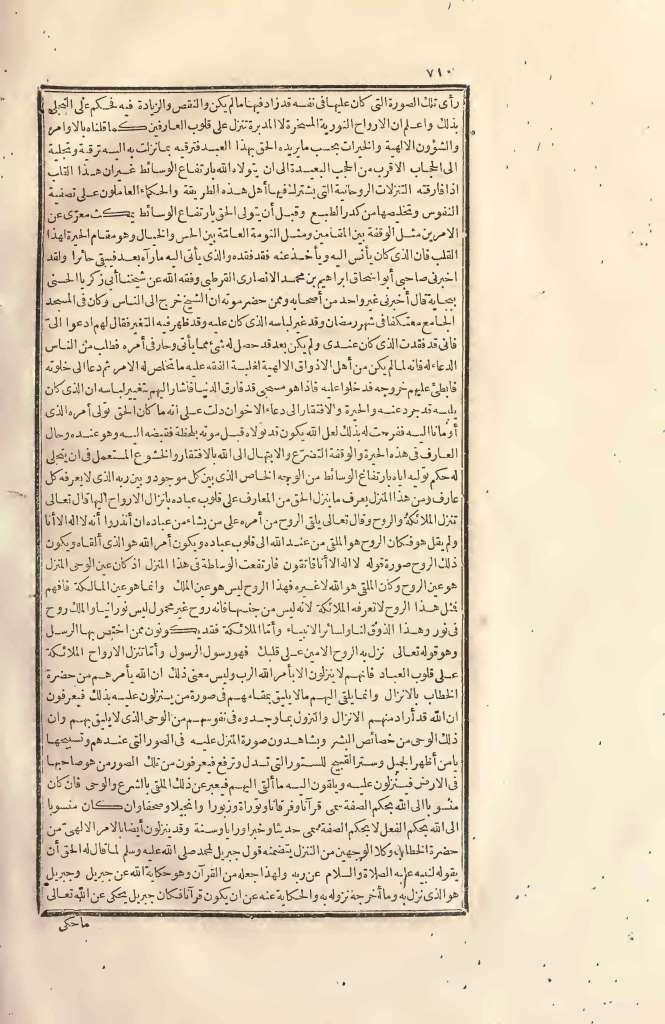 ٧١٠
رأى تلك الصورة التى كان عليها فى نفسه قد زاد فيها ما لم يكن والنقص والزيادة فيه فحكم على التجلى
بذلك واعلم ان الارواح النورية المسخرة لا المدبرة تنزل على قلوب العارفين كما قلناه بالاوامر
والشؤون الالهية والخيرات بحسب ما يريده الحق بهذا العبد فترقيه بما نزلت به اليه ترقية وتخلية
الى الحجاب الاقرب من الحجب البعيدة الى ان يتولاه الله بارتفاع الوسائط غير ان هذا القلب
اذا فارقته التنزلات الروحانية التى يشترك فيها أهل هذه الطريقة والحكماء العاملون على تصفية
النفوس وتخلصها من كدر الطبع وقبل أن يتولى الحق بارتفاع الوسائط يمكث معرّى عن
الامرين مثل الوقفة بين المقامين ومثل النومة العامّة بين الحس والخيال وهو مقام الحيرة لهذا
القلب فان الذى كان يأنس اليه ويأخذ عنه فقد فقده والذى يأتى اليه ما رآه بعد فيبقى حائرا ولقد
اخبرنى صاحبى أبو اسحاق ابراهيم بن محمد الانصارى القرطبى وفقه الله عن شيخنا أبى زكريا الحسنى
ببجاية قال أخبرنى غير واحد من أصحابه وممن حضر موته ان الشيخ خرج الى الناس وكان فى المسجد
الجامع معتكفا فى شهر رمضان وقد غير لباسه الذى كان عليه وقد ظهر فيه التغير فقال لهم ادعوا الىّ
فانى قد فقدت الذى كان عندى ولم يكن بعد قد حصل له شئ مما يأتى وحار فى أمره فطلب من الناس
الدعاء له فانه لما لم يكن من أهل الاذواق الالهية لغلبة الفقه عليه ما تخلص له الامر ثم دعا الى خلوته
فابطئ عليهم خروجه فدخلوا عليه فاذا هو مسجى قد فارق الدنيا فاشار اليهم بتغيير لباسه ان الذى كان
يلبسه قد جرد عنه والحيرة والافتقار الى دعاء الاخوان دلت على انه ما كان الحق تولى أمره الذى
أومأنا اليه ففرحت له بذلك لعل الله يكون قد تولاه قبل موته بلحظة فقبضه اليه وهو عنده وحال
العارف فى هذه الحيرة والوقفة التضرّع والابتهال الى الله بالافتقار والخشوع المستعمل فى ان يتجلى
له حكم توليه اياه بارتفاع الوسائط من الوجه الخاص الذى بين كل موجود وبين ربه الذى لا يعرفه كل
عارف ومن هذا المنزل يعرف ما ينزل الحق من المعارف على قلوب عباده بانزال الارواح اليها قال تعالى
تنزل الملائكة والروح وقال تعالى يلقى الروح من أمره على من يشاء من عباده ان أنذروا أنه لا اله الا أنا
ولم يقل هو فكان الروح هو الملقى من عند الله الى قلوب عباده ويكون أمر الله هو الذى ألقاه ويكون
ذلك الروح صورة قوله لا اله الا أنا فاتقون فارتفعت الوساطة فى هذا المنزل اذ كان عين الوحى المنزل
هو عين الروح وكان الملقى هو الله لا غيره فهذا الروح ليس هو عين الملك وانما هو عين المالكة فافهم
فمثل هذا الروح لا تعرفه الملائكة لانه ليس من جنسها فانه روح غير محمول ليس نورانيا والملك روح
فى نور وهذا الذوق لنا ولسائر الانبياء وأمّا الملائكة فقد يكونون ممن اختص بها الرسل
وهو قوله تعالى نزل به الروح الامين على قلبك فهو رسول الرسول وأما تنزل الارواح الملائكة
على قلوب العباد فانهم لا ينزلون الا بأمر الله الرب وليس معنى ذلك ان الله يأمرهم من حضرة
الخطاب بالانزال وانما يلقى اليهم ما لا يليق بمقامهم فى صورة من ينزلون عليه بذلك فيعرفون
ان الله قد أراد منهم الانزال والنزول بما وجدوه فى نفوسهم من الوحى الذى لا يليق بهم وان
ذلك الوحى من خصائص البشر ويشاهدون صورة المنزل عليه فى الصور التى عندهم وتسبيحها
يا من أظهر الجميل وستر القبيح للستور التى تسدل وترفع فيعرفون من تلك الصور من هو صاحبها
فى الارض فينزلون عليه ويلقون اليه ما ألقى اليهم فيعبر عن ذلك الملقى بالشرع والوحى فان كان
منسوبا الى الله بحكم الصفة سمى قرآنا وفرقانا وتوراة وزبورا وانجيلا وصحفا وان كان منسوبا
الى الله بحكم الفعل لا بحكم الصفة سمى حديثا وخبرا ورأيا وسنة وقد ينزلون أيضا بالامر الالهىّ من
حضرة الخطاب وكلا الوجهين من التنزل يتضمنه قول جبريل لمحمد صلى الله عليه وسلم لما قال له الحق أن
يقوله لنبيه عليه الصلاة والسلام عن ربه ولهذا جعله من القرآن وهو حكاية الله عن جبريل وجبريل
هو الذى نزل به وما أخرجه نزوله به والحكاية عنه عن ان يكون قرآنا فكان جبريل يحكى عن الله تعالى
ما حكى